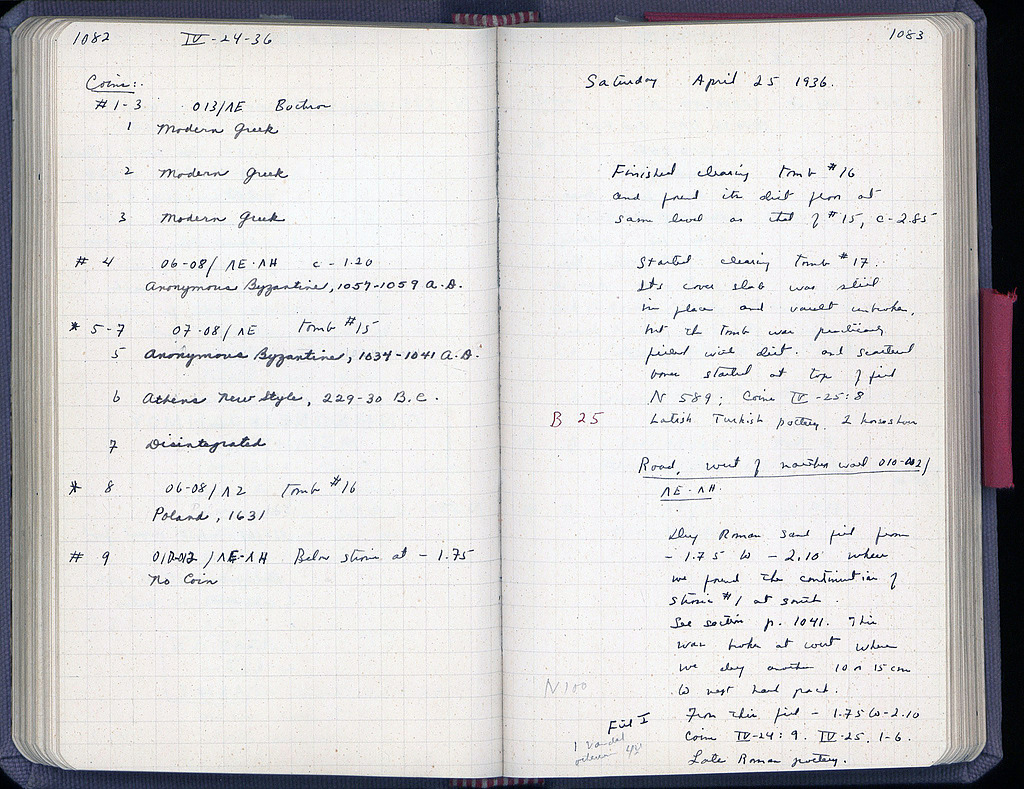 1082 IV-24-36
Coins:
#1-3 013/ΛΕ Bothros
1 Modern Greek
2 Modern Greek
3 Modern Greek
# 4 06-08/ΛΕ-ΛΗ c - 1.20
Anonymous Byzantine, 1057-1059 A.D.
* 5-7 07-08/ΛΕ Tomb #15
5 Anonymous Byzantine, 1034-1041 A.D.
6 Athens New Style, 229-30 B.C.
7 Disintegrated
* 8 06-08/Λ2 Tomb #16
Poland, 1631
# 9 010-012/ΛΕ-ΛΗ Below strosis at - 1.75
No Coin
1083
Saturday April 25 1936.
Finished clearing tomb #16
and found its dirt floor at
same level as that of #15, c-2.85
Started clearing Tomb #17.
Its cover slab was still
in place and vault unbroken,
but the tomb was practically
filled with dirt. and scattered
bones started at top of fill
N 589; Coins IV-25:8
B 25 Latish Turkish pottery. 2 horseshoes
Road, west of north-south wall 010-012/
ΛΕ-ΛΗ.
Dug Roman sand fill from
- 1.75 to - 2.10 where
we found the continuation of
strosis #1 at south.
See section p. 1041. This
was broken at west where
we dug another 10 or 15 cm
to next hard packed.
N100
Fill I From this fill - 1.75 to - 2.10
1 Vandal Coins IV-24:9. IV-25, 1-6.
Late Roman pottery.